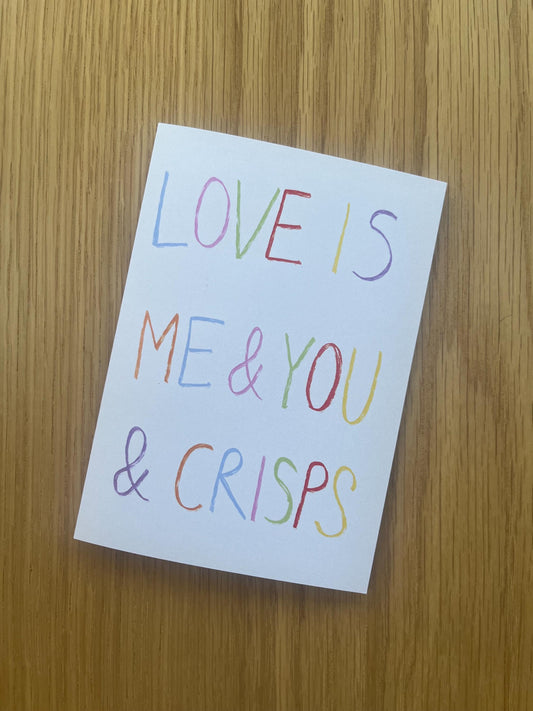 LOVE IS
ME & YOU
& CRISPS